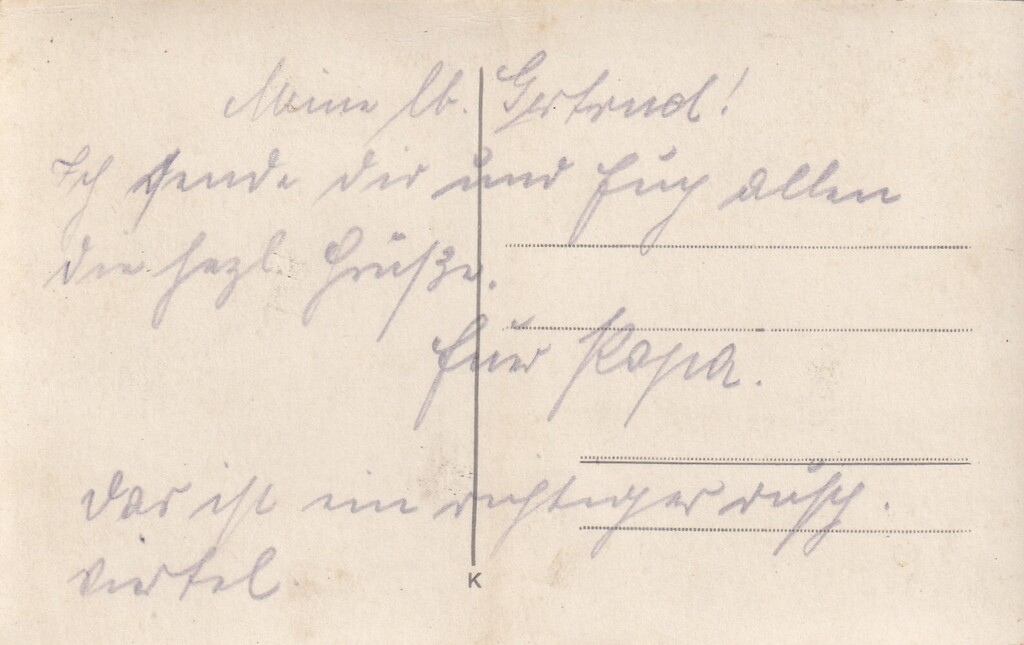 Meine lb. Gertrud!
Ich sende dir und Euch allen
die hezl. Grüße.
Euer Papa.
Das ist ein richtiger
viertel
K